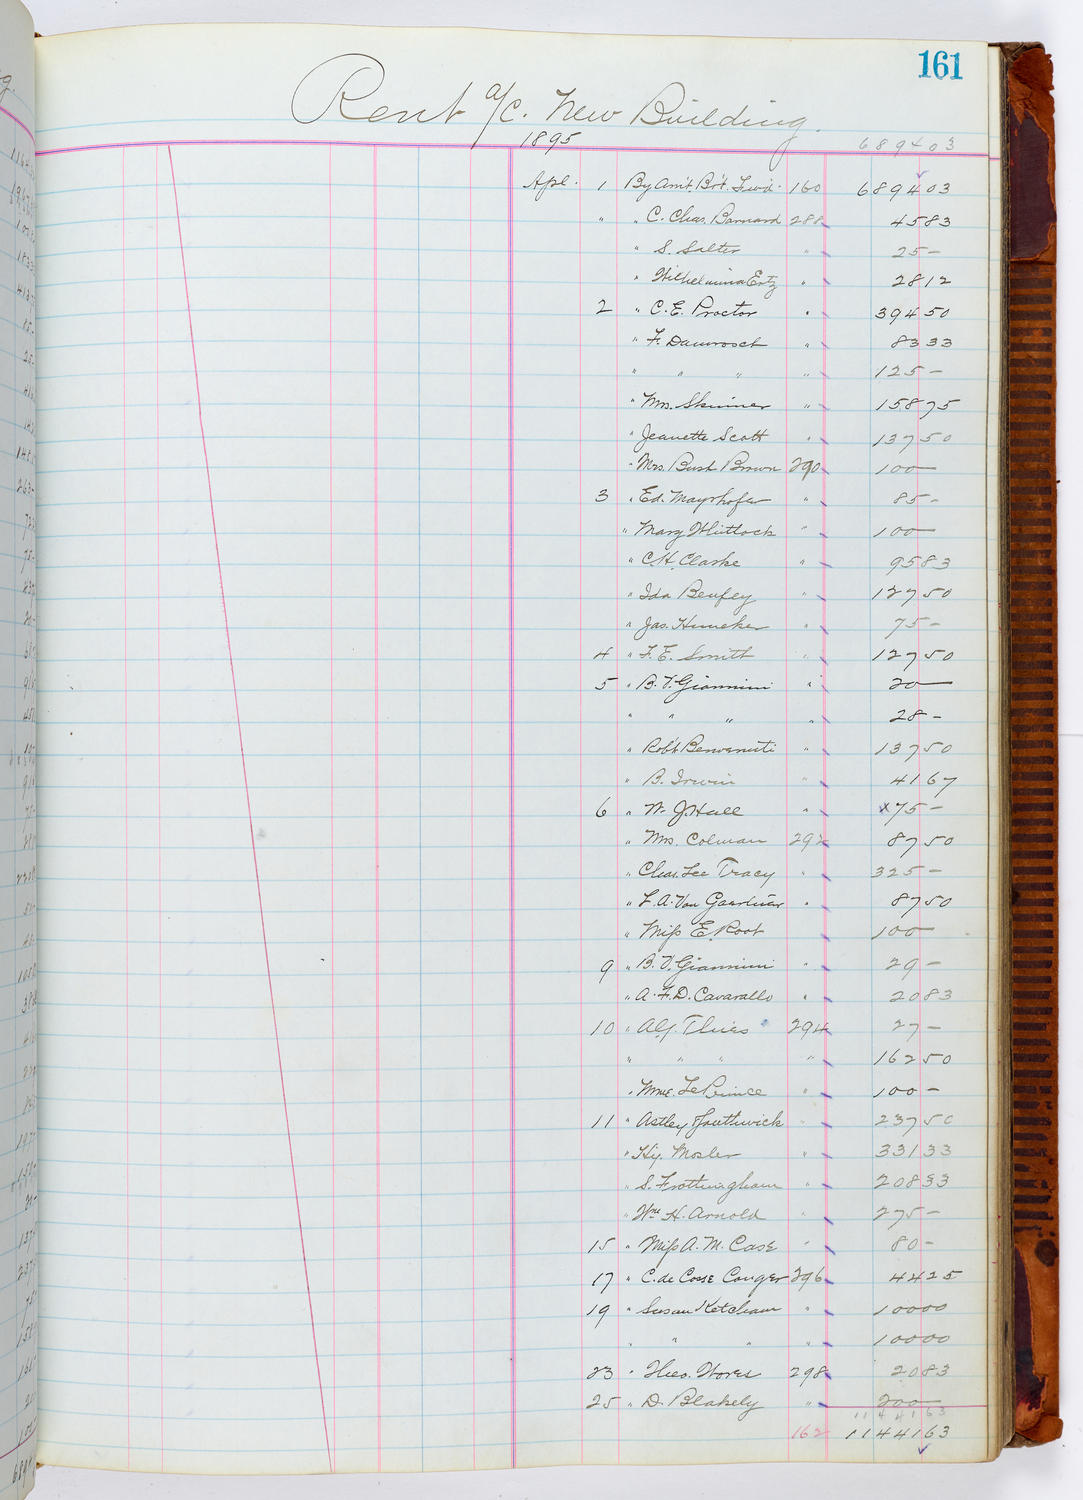 161
Rent a/c. New Building.
1895
689403
Apl. 1 By Am't. Br't. Fwd. 160 689403
" " C. Chas. Barnard 288 4583
" S. Salter " 25 –
" Wilhelmina Ertz " 2812
2 " C. E. Proctor " 39450
" F. Damrosch " 8333
" " " " 125 –
" Mrs. Skinner " 15875
" Jeanette Scott " 13750
" Mrs. Bush Brown 290 100 —
3 " Ed. Mayrhofer " 85 –
" Mary Whitlock " 100 —
" C. H. Clarke " 9583
" Ida Benfey " 12750
" Jas. Huneker " 75 –
4 " F. E. Smith " 12750
5 " B. V. Giannini " 20 —
" " " " 28 –
" Rob't Benvenuti " 13750
" B. Irwin " 4167
6 " W. J. Hall " x75 –
" Mrs. Colman 292 8750
" Chas. Lee Tracy " 325 –
" F. A. Von Gaertner " 8750
" Miss E. Root 100 —
9 " B. V. Giannini " 29 –
" A. F. D. Cavarallo " 2083
10 " Alf. Thies 294 27 –
" " " " 16250
" Mme. Le Prince " 100 –
11 " Astley Southwick " 23750
" Hy. Mosler " 33133
" S. Frothingham " 20833
" Wm H. Arnold " 275 –
15 " Miss A. M. Case " 80 –
17 " C. de Cosse Conger 296 4425
19 " Susan Ketcham " 10000
" " " " 10000
23 " Theo. Wores 298 2083
25 " D. Blakely " 200 —
1144163
162 1144163